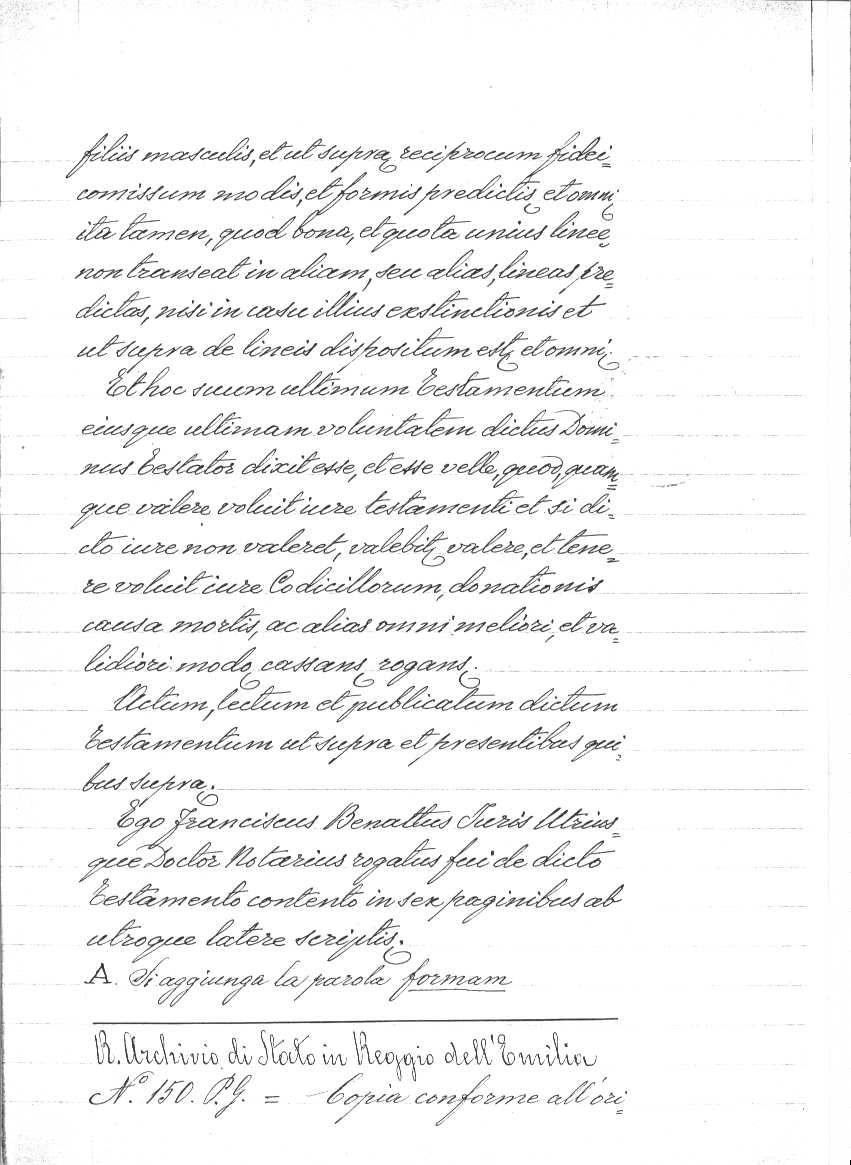 filiis masculis, et ut supra, reciprocum fidei=
comissum modis, et formis predictis, et omni,
ita tamen, quod bona, et quota unius linee
non transeat in aliam, seu alias, lineas pre=
dictas, nisi in casu illius exstinctionis et
ut supra de lineis dispositum est, et omni.
Et hoc suum ultimum Testamentum
eiusque ultimam voluntatem dictus Domi=
nus Testator dixit esse, et esse velle, quod, quam=
que valere voluit iure testamenti et si di=
cto iure non valeret, valebit, valere, et tene=
re voluit iure Codicillorum, donationis
causa mortis, ac alias omni meliori, et va=
lidiori modo, cassans, rogans.
Actum, lectum et publicatum dictum
Testamentum ut supra et presentibus qui=
bus supra.
Ego Franciscus Benattus Juris Utrius=
que Doctor Notarius rogatus fui de dicto
Testamento contento in sex paginibus ab
utroque latere scriptis.
A. Si aggiunga la parola formam
R. Archivio di Stato in Reggio dell'Emilia
N.º 150. P.G. = Copia conforme all'ori=